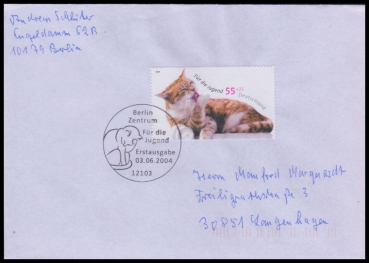 Andreas Schlüter
Engeldamm 62B
10179 Berlin
Für die Jugend 55
Deutschland
Berlin
Zentrum
Für die
Jugend
Erstausgabe
03.06.2004
12103
Herrn Manfred Marquardt
Freiligrathstraße 3
30851 Langenhagen